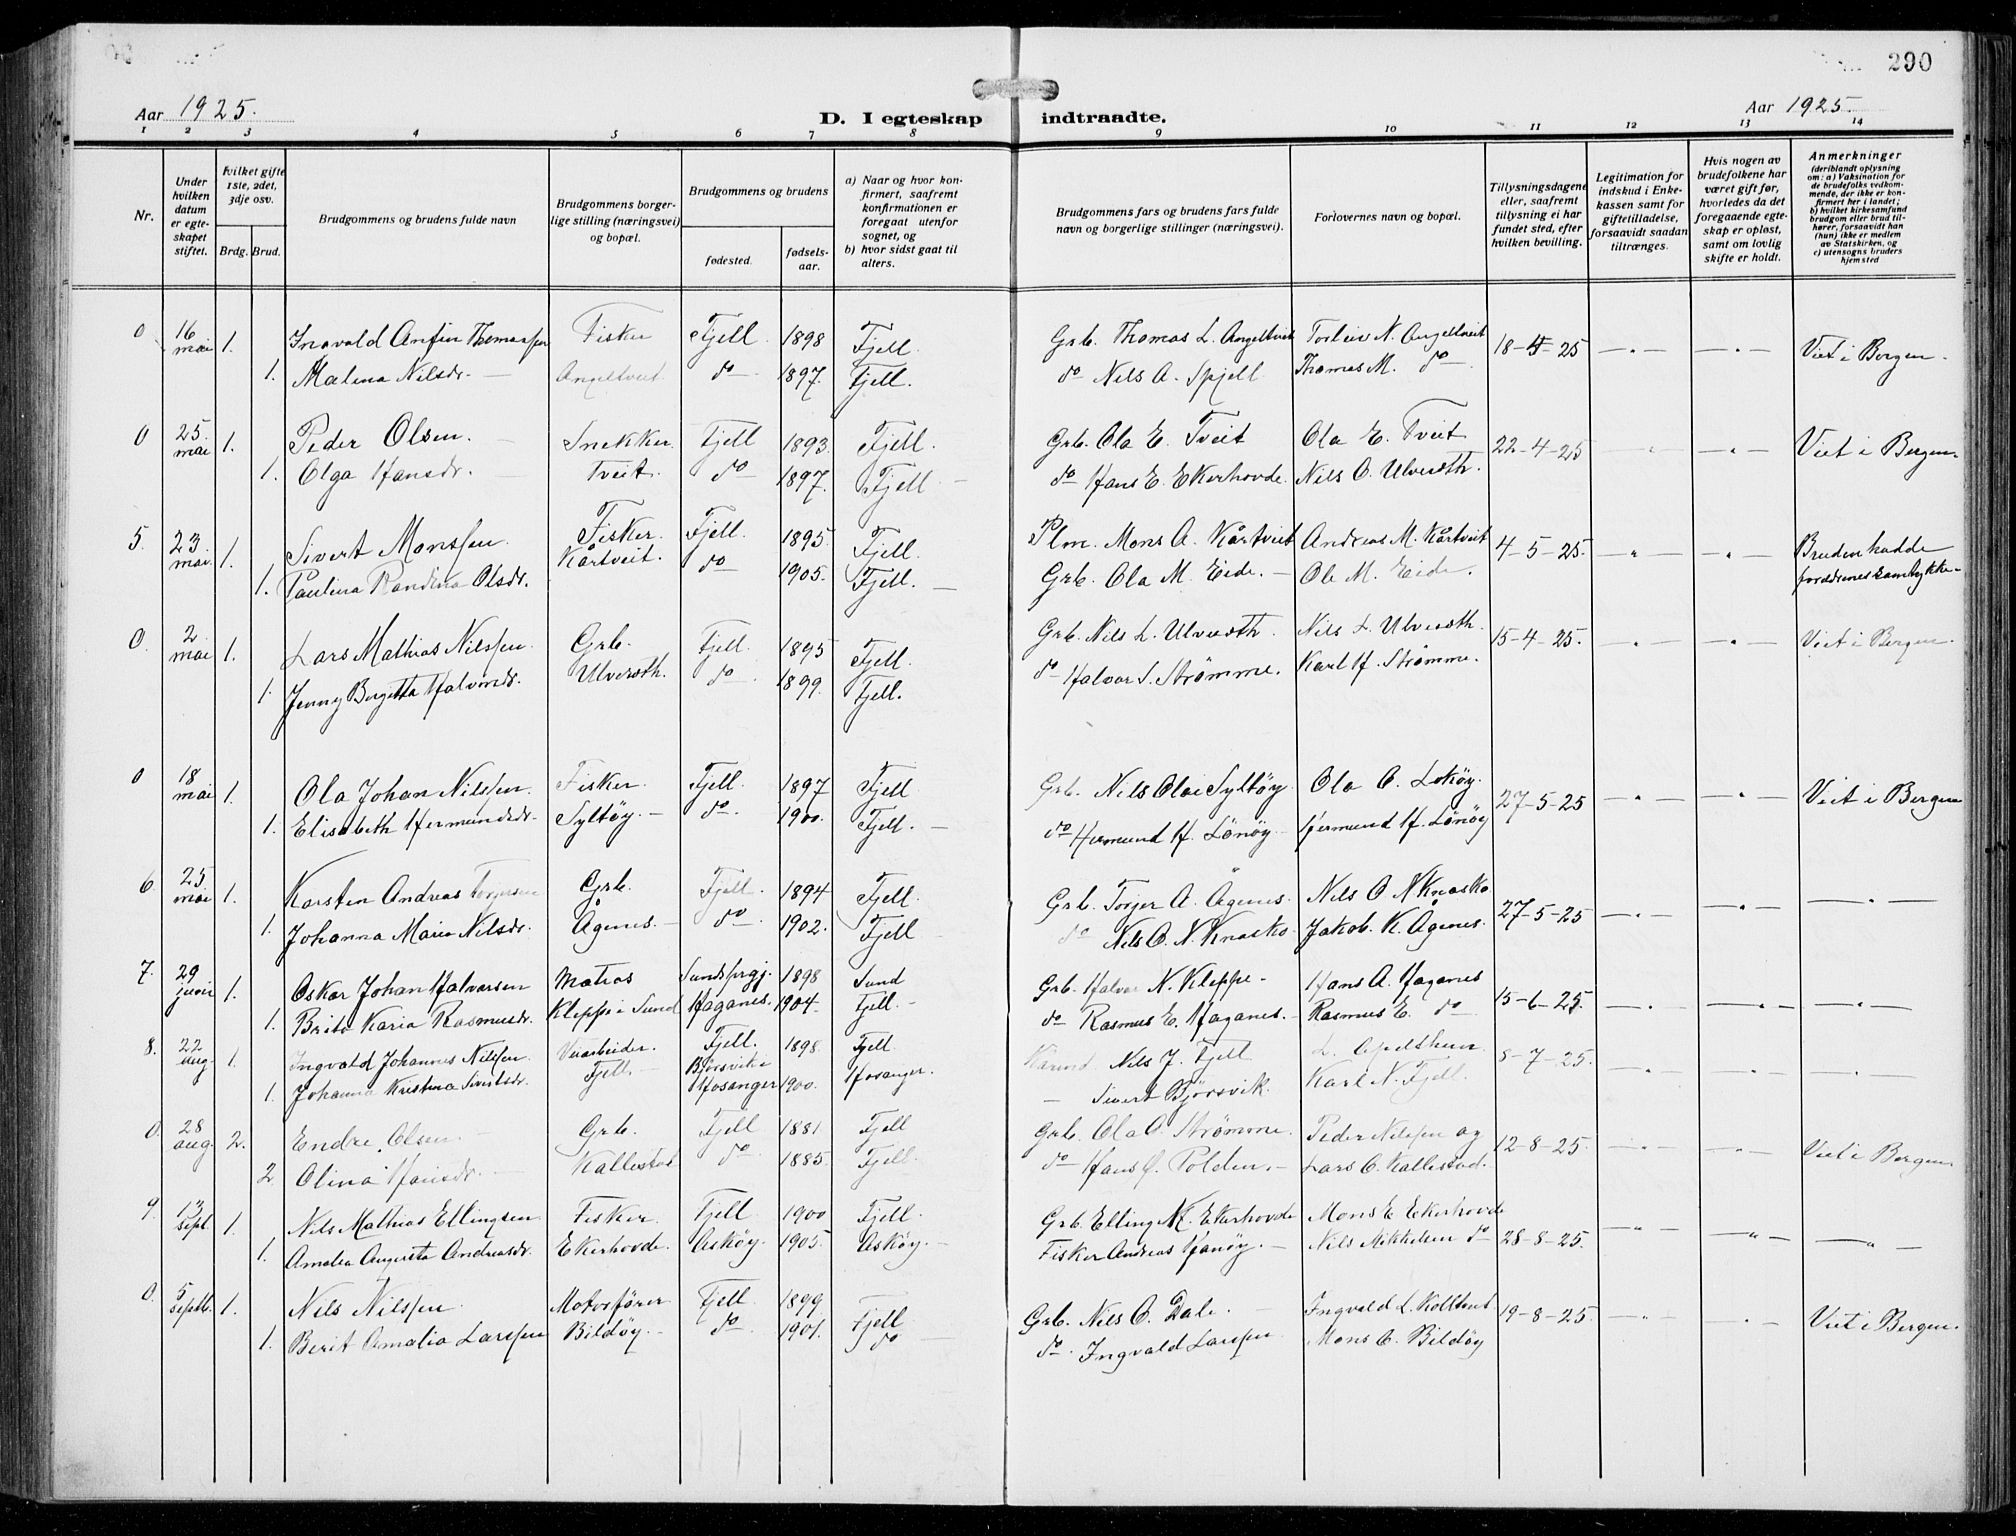 290
Aar 1925.
D. I egteskap indtraadte.
Aar 1925.
1 2 3 4 5 6 7 8 9 10 11 12 13 14
Nr.
Under hvilken datum er egteskapet stiftet.
Hvilket gifte 1ste, 2det, 3dje osv.
Brdg. Brud.
Brudgommens og brudens fulde navn
Brudgommens borgerlige stilling (næringsvei) og bopæl.
Brudgommens og brudens
fødested. fødselsaar.
a) Naar og hvor konfirmert, saafremt konfirmationen er foregaat utenfor sognet, og
b) hvor sidst gaat til alters.
Brudgommens fars og brudens fars fulde navn og borgerlige stillinger (næringsvei).
Forlovernes navn og bopæl.
Tillysningsdagene eller, saafremt tillysning ei har fundet sted, efter hvilken bevilling.
Legitimation for indskud i Enkekassen samt for giftetilladelse, forsaavidt saadan tiltrænges.
Hvis nogen av brudefolkene har været gift før, hvorledes da det foregaaende egteskap er opløst, samt om lovlig skifte er holdt.
Anmerkninger (deriblandt oplysning om: a) Vaksination for de brudefolks vedkommende, der ikke er konfirmert her i landet; b) hvilket kirkesamfund brudgom eller brud tilhører, forsaavidt han (hun) ikke er medlem av Statskirken, og c) utensogns bruders hjemsted
0 16 mai 1. Ingvald Anfin Thomassen Fisker Fjell 1898 Fjell. Grb. Thomas L. Angeltveit Torleiv N. Angeltveit 18-4-25 Viet i Bergen.
1. Malena Nilsdr. Angeltveit do 1897. Fjell. do Nils A. Spjell Thomas M. do
0 25. mai 1. Peder Olsen. Snekker. Fjell 1893. Fjell. Grb. Ola E. Tveit Ola E. Tveit 22-4-25 Viet i Bergen.
1. Olga Hansdr. Tveit. do 1897. Fjell. do Hans E. Ekerhovde. Nils O. Ulveseth.
5. 23. mai 1. Sivert Monssen. Fisker. Fjell. 1895. Fjell. Plm. Mons A. Kårtveit Andreas M. Kårtveit 4-5-25. Bruden hadde
1. Paulina Randina Olsdr. Kårtveit. do 1905. Fjell. Grb. Ola M. Eide. Ole M. Eide. foreldrenes samtykke
0. 2. mai 1. Lars Mathias Nilssen. Grb. Fjell. 1895 Fjell. Grb. Nils L. Ulveseth. Nils L. Ulveseth. 15-4-25. Viet i Bergen.
1. Jenny Bergitta Halvorsdr. Ulveseth. do 1899. Fjell. do Halvor S. Strømme. Karl H. Strømme.
0 18 mai 1. Ola Johan Nilssen. Fisker. Fjell. 1897 Fjell Grb. Nils Olai Syltöy. Ola O. Loköy. 27-5-25 Viet i Bergen
1. Elisabeth Hermundsdr. Syltöy. do. 1900. Fjell. do Hermund H. Lönöy. Hermund H. Lönöy
6. 25 mai 1. Karsten Andreas Torgersen Grb. Fjell. 1894 Fjell. Grb. Torger A. Ågenes. Nils O. N Knasko 27-5-25
1. Johanna Maria Nilsdr. Ågenes. do 1902. Fjell do Nils O. N. Knasko. Jakob. K. Ågenes.
7. 29 juni 1. Oskar Johan Halvorsen Matros Sund prgj. 1898 Sund Grb. Halvor N. Kleppe. Hans A. Haganes 15-6-25.
1. Brita Karia Rasmusdr. Kleppe i Sund Haganes. 1904. Fjell. do Rasmus E. Haganes. Rasmus E. do
8. 22 aug. 1. Ingvald Johannes Nilssen Veiarbeider. Fjell. 1898. Fjell Nils J. Fjell 8-7-25.
1. Johanna Kristina Sivertsdr. Fjell. Bjørsvik i Hosanger 1900. Hosanger. Sivert Bjørsvik. Karl N. Fjell.
0. 28 aug. 2. Endre Olsen. Grb. Fjell 1881 Fjell Grb. Ola O. Strømme. Peder Nilssen og 12-8-25. Viet i Bergen.
2. Olina Hansdr. Kallestad do 1885. Fjell. do Hans O. Polden. Lars O. Kallestad.
9. 13 sept. 1. Nils Mathias Ellingsen Fisker. Fjell. 1900 Fjell. Grb. Elling M. Ekerhovde Mons E. Ekerhovde 28-8-25.
1. Amalia Augusta Andreasdr. Ekerhovde. Asköy. 1905. Asköy. Fisker Andreas Hanöy. Nils Mikkelsen do
0. 5 septb. 1. Nils Nilssen. Motorfører Fjell. 1899 Fjell Grb. Nils O. Dale. Ingvald L. Koltveit 19-8-25. Viet i Bergen.
1. Berit Amalia Larssen Bildöy. do 1901. do do. Ingvald Larssen Mons O. Bildöy